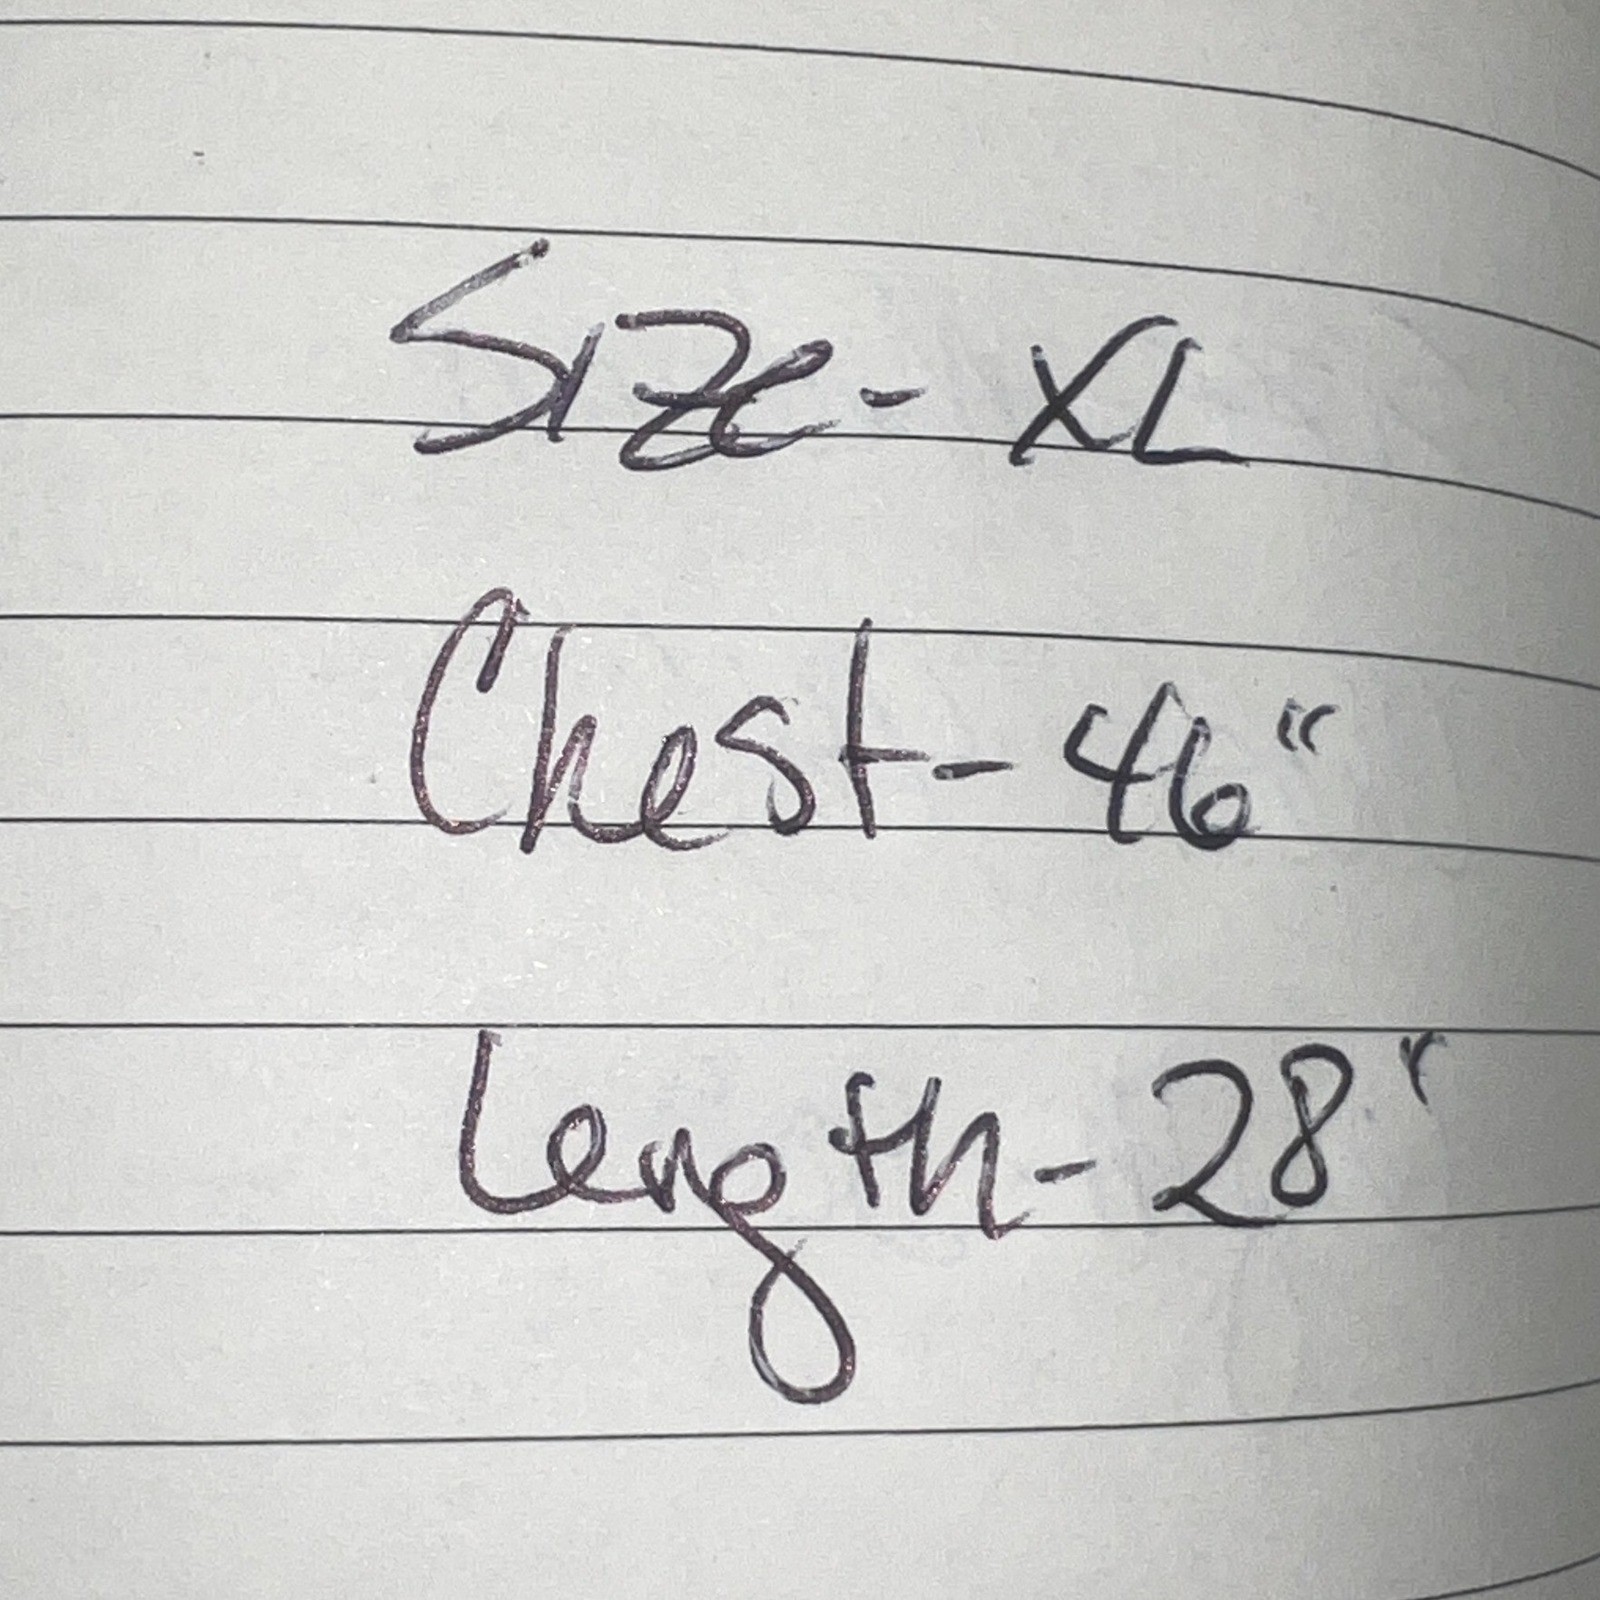 Size - XL
Chest - 46"
Length - 28"